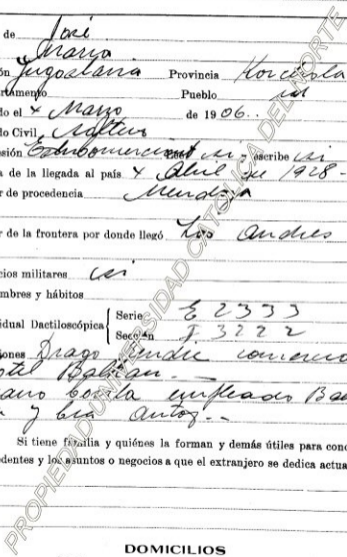 de José
María
ón Jugoslavia Provincia Korcula
rtamento Pueblo id
do el 4 Marzo de 1906..
do Civil, Soltero
esión Estud. comercial Lee si - escribe si
a de la llegada al país 4 Abril de 1928 -
r de procedencia Mendoza
r de la frontera por donde llegó Los Andes
cios militares
mbres y hábitos
idual Dactiloscópica Serie E 2333
Sección I 3222
ones Drago comercio
otel Balkan.-
empleado Ban
y Cía Antof.-
Si tiene familia y quiénes la forman y demás útiles para conc
dentes y los asuntos o negocios a que el extranjero se dedica actua
DOMICILIOS
PROPIEDAD UNIVERSIDAD CATOLICA DEL NORTE